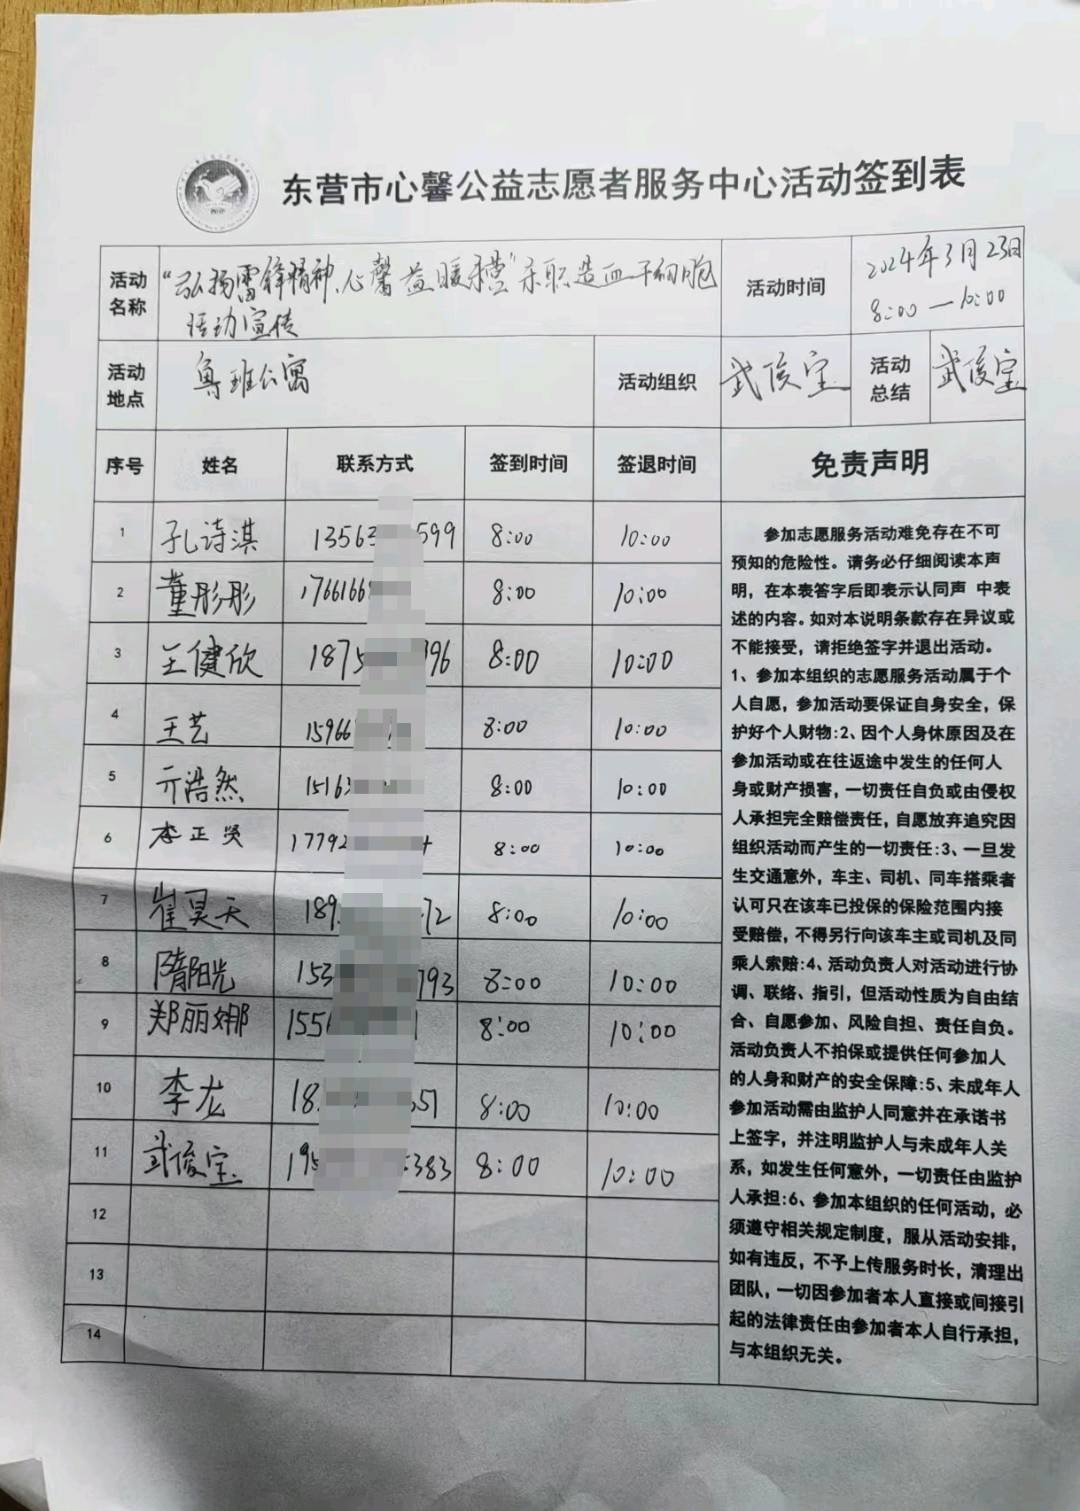 东营市心馨公益志愿者服务中心活动签到表
活动名称 “弘扬雷锋精神、心馨益暖东营”东职造血干细胞 活动时间 2024年3月23日
活动宣传 8:00—10:00
活动地点 鲁班公寓 活动组织 武俊宝 活动总结 武俊宝
序号 姓名 联系方式 签到时间 签退时间 免责声明
1 孔诗淇 13563 599 8:00 10:00
2 董彤彤 1766166 8:00 10:00
3 王健欣 1875 396 8:00 10:00
4 王艺 15966 8:00 10:00
5 亓浩然 15163 8:00 10:00
6 李正贤 17792 8:00 10:00
7 崔昊天 189 72 8:00 10:00
8 隋阳光 153 793 8:00 10:00
9 郑丽娜 155 1 8:00 10:00
10 李龙 18 51 8:00 10:00
11 武俊宝 195 383 8:00 10:00
12
13
14
参加志愿服务活动难免存在不可
预知的危险性。请务必仔细阅读本声
明，在本表答字后即表示认同声 中表
述的内容。如对本说明条款存在异议或
不能接受，请拒绝签字并退出活动。
1、参加本组织的志愿服务活动属于个
人自愿，参加活动要保证自身安全，保
护好个人财物:2、因个人身休原因及在
参加活动或在往返途中发生的任何人
身或财产损害，一切责任自负或由侵权
人承担完全赔偿责任，自愿放弃追究因
组织活动而产生的一切责任:3、一旦发
生交通意外，车主、司机、同车搭乘者
认可只在该车已投保的保险范围内接
受赔偿，不得另行向该车主或司机及同
乘人索赔:4、活动负责人对活动进行协
调、联络、指引，但活动性质为自由结
合、自愿参加、风险自担、责任自负。
活动负责人不拍保或提供任何参加人
的人身和财产的安全保障:5、未成年人
参加活动需由监护人同意并在承诺书
上签字，并注明监护人与未成年人关
系，如发生任何意外，一切责任由监护
人承担:6、参加本组织的任何活动，必
须遵守相关规定制度，服从活动安排，
如有违反，不予上传服务时长，清理出
团队，一切因参加者本人直接或间接引
起的法律责任由参加者本人自行承担，
与本组织无关。